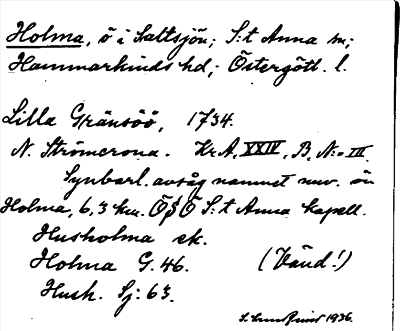 Holma, ö i Saltsjön; S:t Anna sn;
Hammarkinds hd; Östergötl. l.
Lilla Gränsöö, 1734.
N. Strömcrona. Kr A, XXIV, B, N:o III.
Synbarl. avsåg namnet nuv. ön
Holma, 6,3 km. ÖSÖ S:t Anna kapell.
Husholma sk.
Holma G. 46. (Vänd!)
Hush. Sj: 63.
1936.